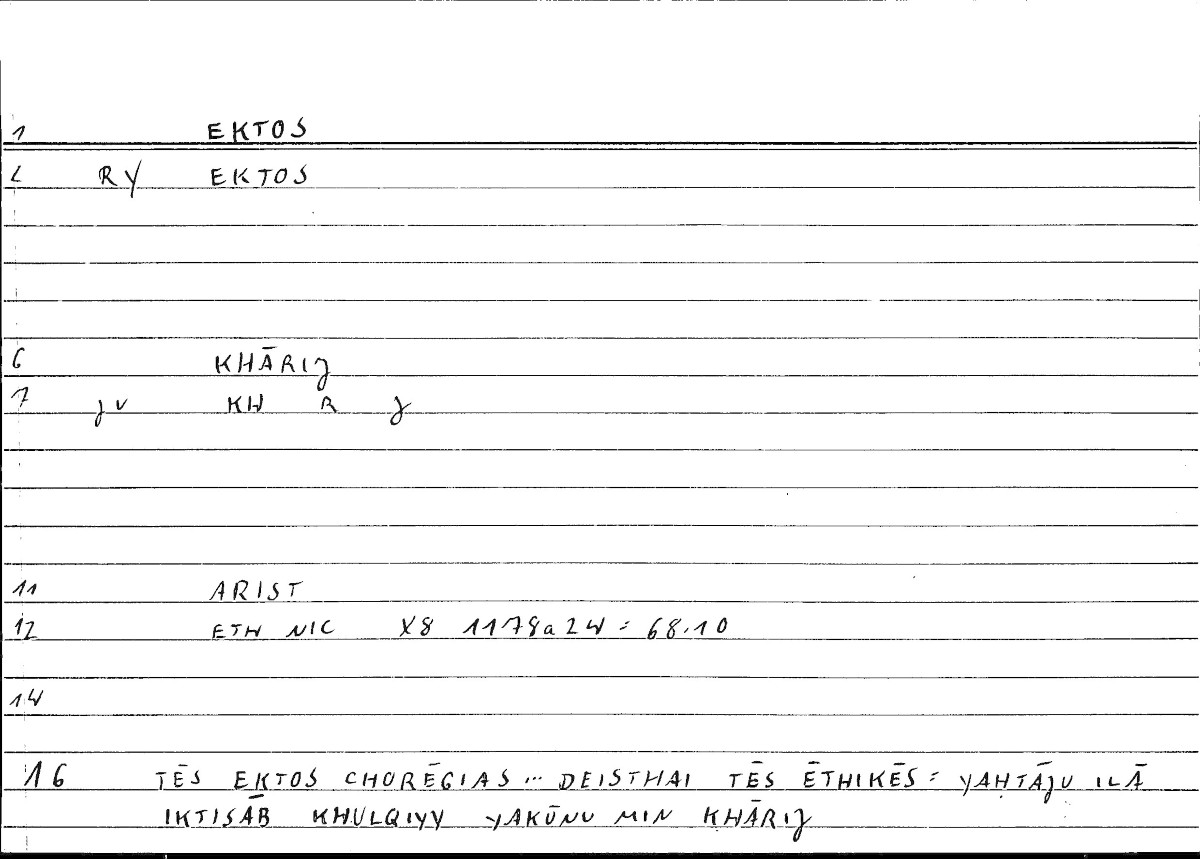 1 EKTOS
2 RY EKTOS
6 KHĀRIJ
7 JV KH R J
11 ARIST
12 ETH NIC X8 1178a24 = 68.10
14
16 TĒS EKTOS CHORĒGIAS ... DEISTHAI TĒS ĒTHIKĒS = YAḤTĀJU ILĀ
IKTISĀB KHULQIYY YAKŪNU MIN KHĀRIJ